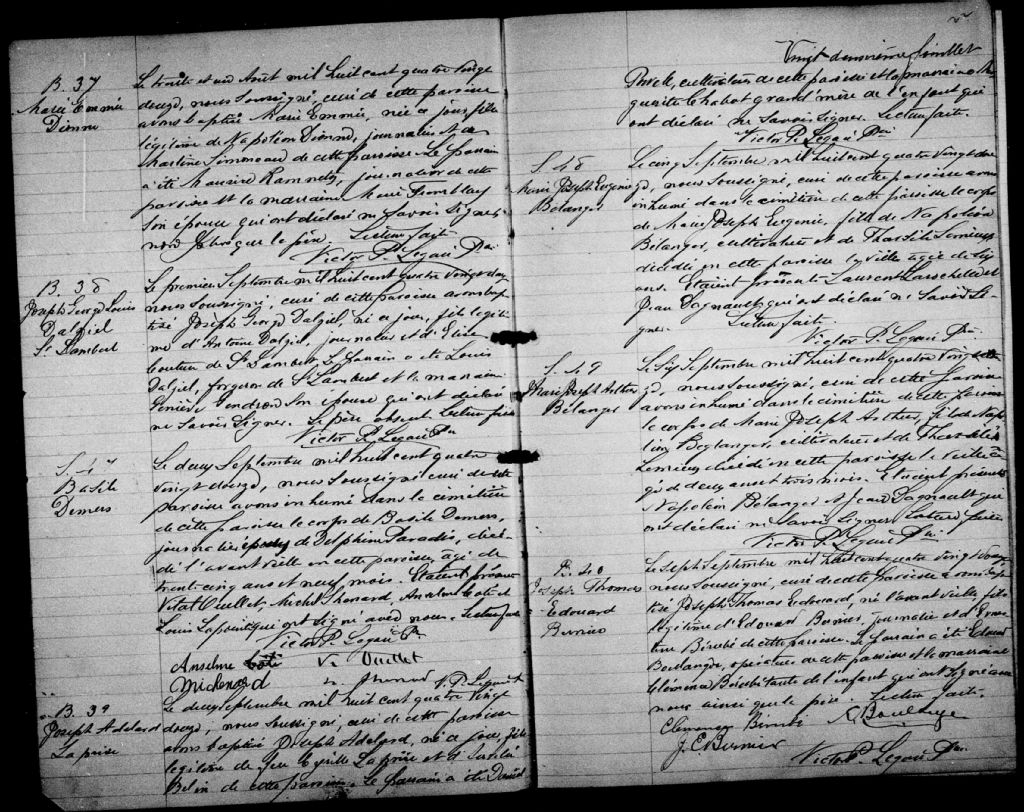 B. 37
Marie Emmée
Dionne
Le trente et un Août mil huit cent quatre vingt
douze, nous soussigné, curé de cette paroisse
avons baptisé Marie Emmée, née ce jour, fille
légitime de Napoléon Dionne, journalier et de
Martine Simoneau de cette paroisse. Le parrain
a été Kamnetz, journalier de cette
paroisse et la marraine Marie Tremblay
son épouse qui ont déclaré ne savoir signer
que le père. Lecture faite.
Victor P. Legaré Ptre
B. 38
Joseph George Louis
Dalziel
St Lambert
Le premier Septembre mil huit cent quatre vingt douze
nous soussigné, curé de cette paroisse avons bap-
tisé Joseph George Dalziel, né ce jour, fils légiti-
me d'Antoine Dalziel, journalier et d'Elise
Couture de St Lambert. Le parrain a été Louis
Dalziel, forgeron de St Lambert et la marraine
Gendron son épouse qui ont déclaré
ne savoir signer. Le père absent. Lecture faite
Victor P. Legaré Ptre
S. 47
Basile
Demers
Le deux Septembre mil huit cent quatre
vingt douze, nous soussigné curé de cette
paroisse avons inhumé dans le cimetière
de cette paroisse le corps de Basile Demers,
journalier époux de Delphine Paradis, décé-
dé l'avant veille en cette paroisse, âgé de
trente cinq ans et neuf mois. Etaient présents
Vital Ouellet, Michel Shenard, Anselme Coté et
Louis Lapointe qui ont signé avec nous. Lecture faite
Victor P. Legaré Ptre
Anselme Coté Vi Ouillet
V. P. Legaré
B. 39
Joseph Adelard
Laprise
Le deux septembre mil huit cent quatre vingt
douze, nous soussigné, curé de cette paroisse
avons baptisé Joseph Adelard, né ce jour, fils
légitime de feu Cyrille Laprise et d'
Belin de cette paroisse. Le parrain a été Daniel
Vingt deuxième feuillet
cultivateur de cette paroisse et la marraine Mar-
guerite Chabot grand'mère de l'enfant qui
ont déclaré ne savoir signer. Lecture faite.
Victor P. Legaré Ptre
S. 48
Marie Joseph Eugénie
Bélanger
Le cinq Septembre mil huit cent quatre vingt dou-
ze, nous soussigné, curé de cette paroisse avons
inhumé dans le cimetière de cette paroisse le corps
de Marie Joseph Eugénie, fille de Napoléon
Bélanger, cultivateur et de Tharsile Lemieux
décédée en cette paroisse la veille âgée de six
ans. Etaient présents Laurent Larochelle et
Jean Dagnault qui ont déclaré ne savoir si-
gner. Lecture faite.
Victor P. Legaré Ptre
S. 49
Marie Joseph Arthur
Bélanger
Le six Septembre mil huit cent quatre vingt dou-
ze, nous soussigné, curé de cette paroisse
avons inhumé dans le cimetière de cette paroisse
le corps de Marie Joseph Arthur, fils de Napo-
léon Bélanger, cultivateur et de Tharsile
Lemieux décédé en cette paroisse la veille â-
gé de deux ans et trois mois. Etaient présents
Napoléon Bélanger et Jean Dagnault qui
ont déclaré ne savoir signer. Lecture faite
Victor P. Legaré Ptre
B. 40
Joseph Thomas
Edouard
Bernier
Le sept Septembre mil huit cent quatre vingt douze,
nous soussigné, curé de cette paroisse avons bap-
tisé Joseph Thomas Edouard, né l'avant veille, fils
légitime d'Edouard Bernier, journalier et d'
Bérubé de cette paroisse. Le parrain a été Edouard
Boulanger, de cette paroisse et la marraine
Clémence Bérubé tante de l'enfant qui ont signé avec
nous ainsi que le père. Lecture faite.
Clemence Bérubé E. Boulanger
J. E. Bernier
Victor P. Legaré Ptre